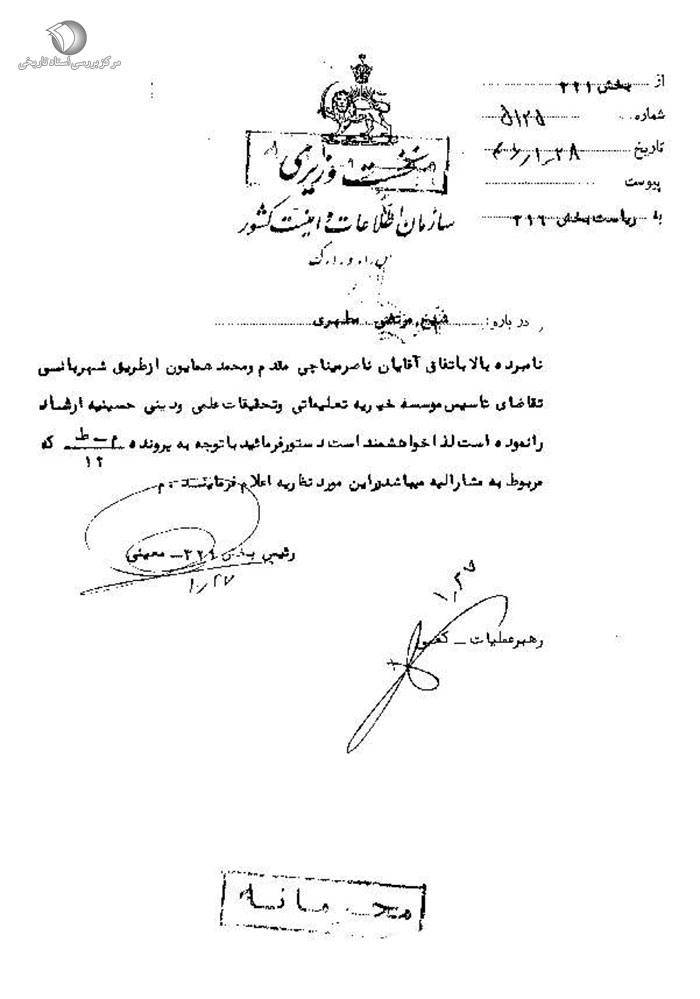 مرکز بررسی اسناد تاریخی
از بخش ۳۲۱
شماره ۵۱۲۵
تاریخ ۴۶/۱/۲۸
پیوست
به ریاست بخش ۳۱۶
نخست وزیری
سازمان اطلاعات و امنیت کشور
در باره : شیخ مرتضی مطهری
نامبرده بالا باتفاق آقایان ناصر میناچی مقدم و محمد همایون از طریق شهربانی
تقاضای تأسیس موسسه خیریه تعلیماتی و تحقیقات علمی و دینی حسینیه ارشاد
را نموده است لذا خواهشمند است دستور فرمائید با توجه به پرونده م ـ ط / ۱۲ که
مربوط به مشارالیه میباشد در این مورد نظریه اعلام فرمایند . م
رئیس بخش ۳۲۱ ـ معینی
۱/۲۷
رهبر عملیات ـ
محرمانه